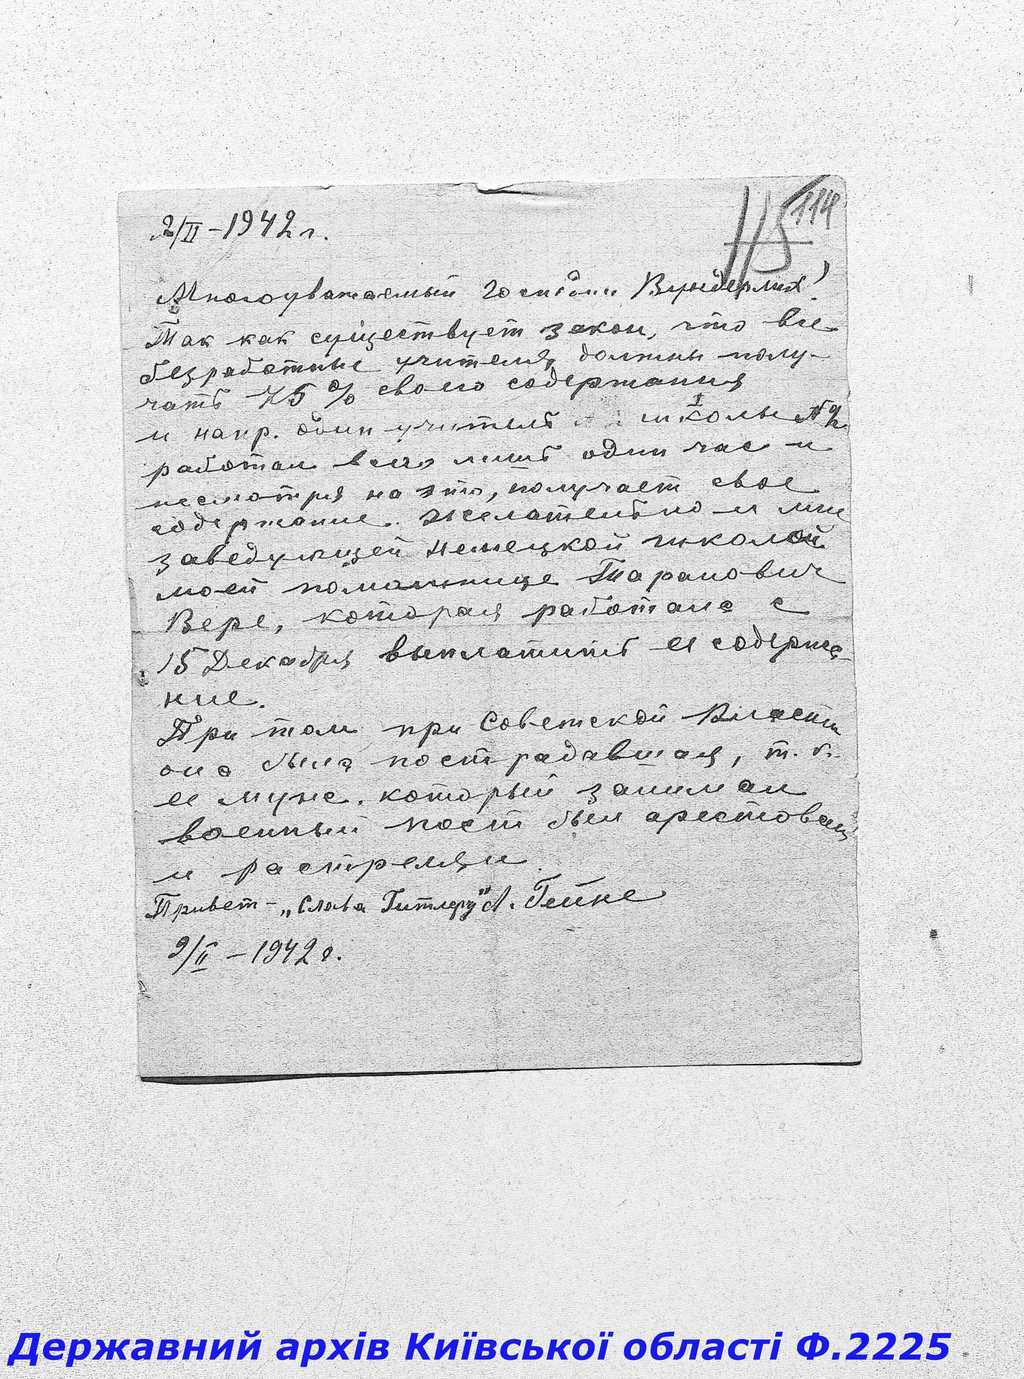 2/II – 1942 г.
115 114
Многоуважаемый Господин Вундерлих!
Так как существует закон, что все
безработные учителя, должны полу-
чать 75 % своего содержания
и напр. один учитель школы № 2
работал всего лишь один час и
несмотря на это, получает свое
содержание. Желательно и мне
заведующей Немецкой школой
моей помошнице Таранович
Вере, которая работала с
15 Декабря выплатить ея содержа-
ние.
При том при Советской Власти
она была пострадавшая, т. к.
ее муж. который занимал
военный пост был арестован
и растрелян.
Привет – „Слава Гитлеру" Л. Гейне
2/II – 1942 г.
Державний архів Київської області Ф.2225